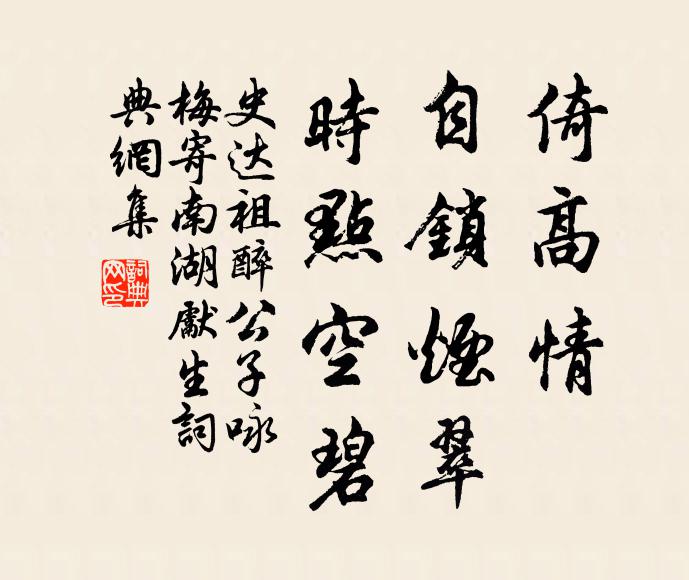 倚高情
自鎖煙翠
時點空碧
史达祖醉公子咏
梅寄南湖獻生詞
典網集
詞典網印